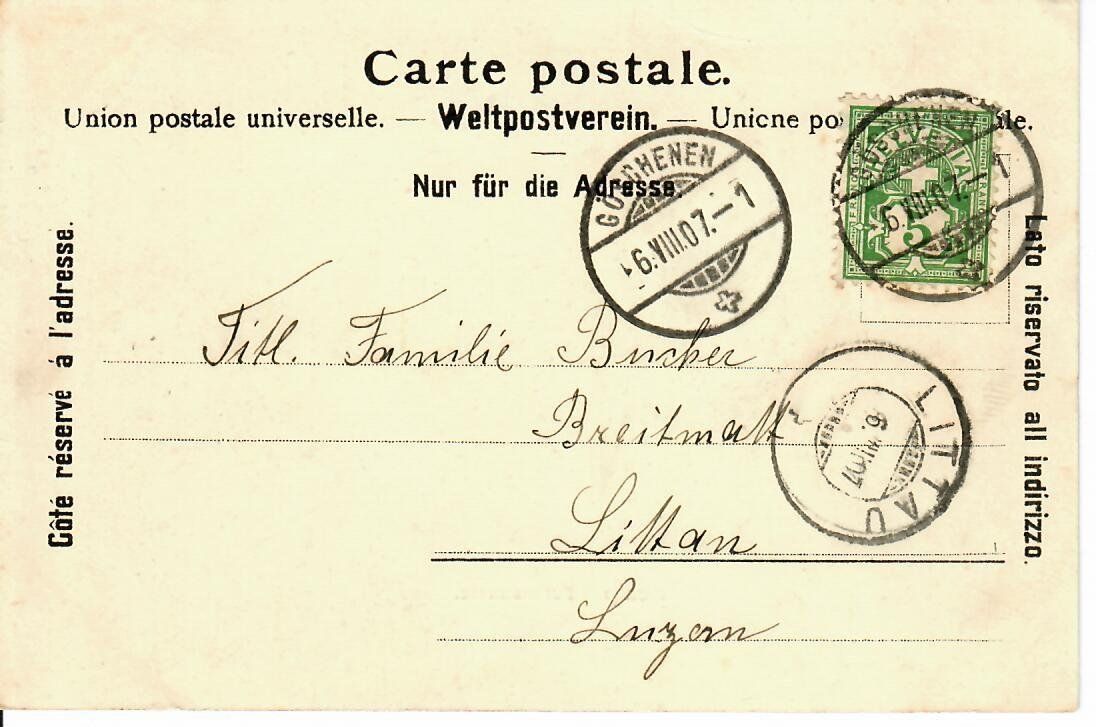 Carte postale.
Union postale universelle. — Weltpostverein. — Unicne po ale.
Nur für die Adresse.
Côté réservé á l'adresse.
Lato riservato all indirizzo.
GÖSCHENEN
6.VIII.07.—1
HELVETIA
FRANCO
5
6.VIII.07.—1
Titl. Familie Bucher
Breitmatt
Littau
Luzern
LITTAU
6.VIII.07